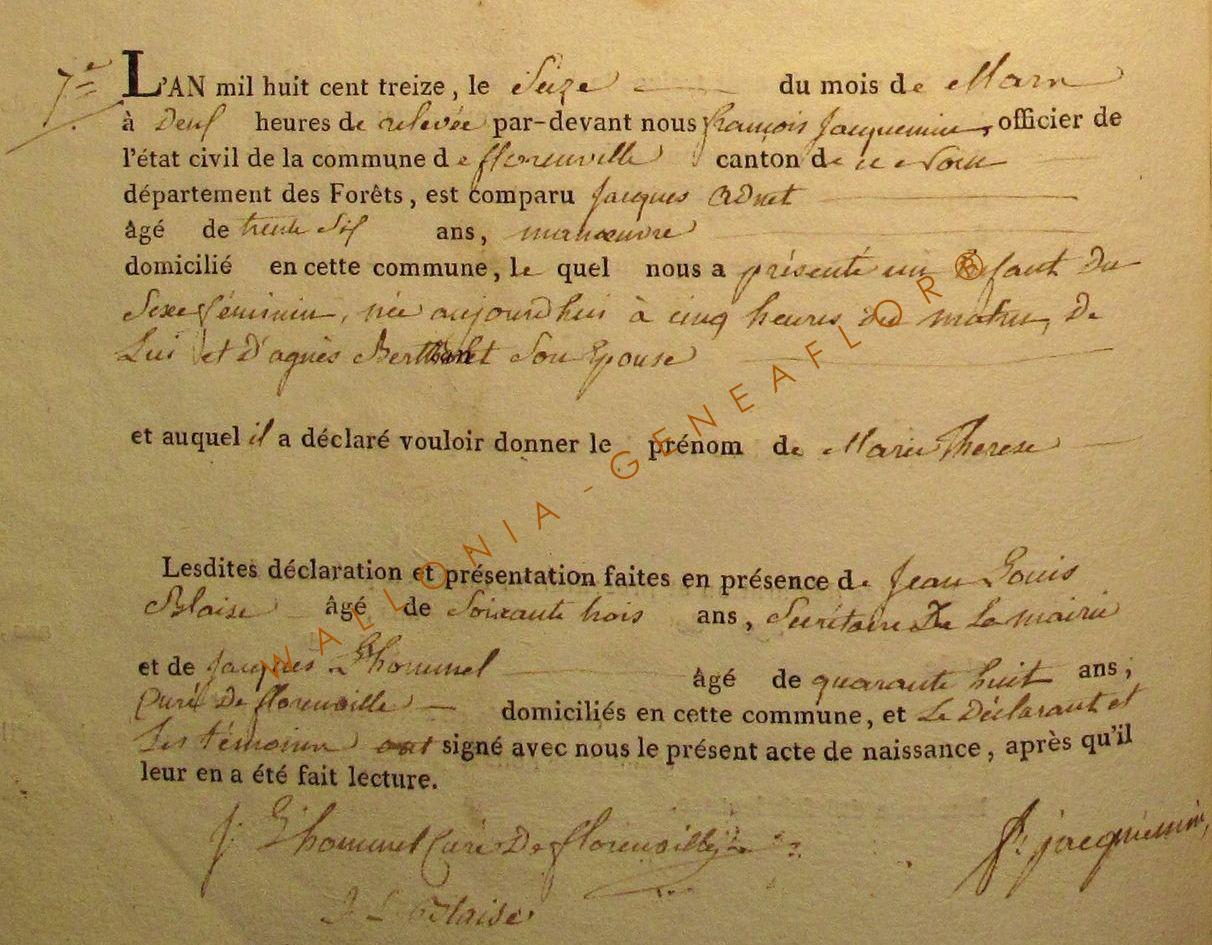 7.e
L'AN mil huit cent treize, le Seize du mois de Mars
à Deux heures de relevée par-devant nous françois Jacquemin, officier de
l'état civil de la commune de florenville canton de
département des Forêts, est comparu Jacques Adnet
âgé de trente Six ans, manœuvre
domicilié en cette commune, le quel nous a présenté un Enfant Du
Sexe féminin, née aujourdhui à cinq heures du matin, De
Lui et D'agnès Son Epouse
et auquel il a déclaré vouloir donner le prénom de Marie Therese
Lesdites déclaration et présentation faites en présence de Jean Louis
Blaise âgé de Soixante trois ans, Secrétaire De La mairie
et de Jacques Lhommel âgé de quarante huit ans,
Curé De florenville domiciliés en cette commune, et Le Déclarant et
Les témoins ont signé avec nous le présent acte de naissance, après qu'il
leur en a été fait lecture.
J: Lhommel Curé De florenville
f: jacquemin
J L Blaise
WALLONIA-GENEAFLOR®